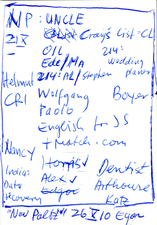 NP: UNCLE
21X Craigs List = CL
O/L 214:
Ede/MA Wedding
214: AL/Stephen
Helmut Wolfgang Boyer
CRI Paolo
English for JS
Nancy + Match.com
India: Dentist
Data Alex Arthouse
Recovery Edgar KatZ
"New Paltz" 26 X 10 Egon